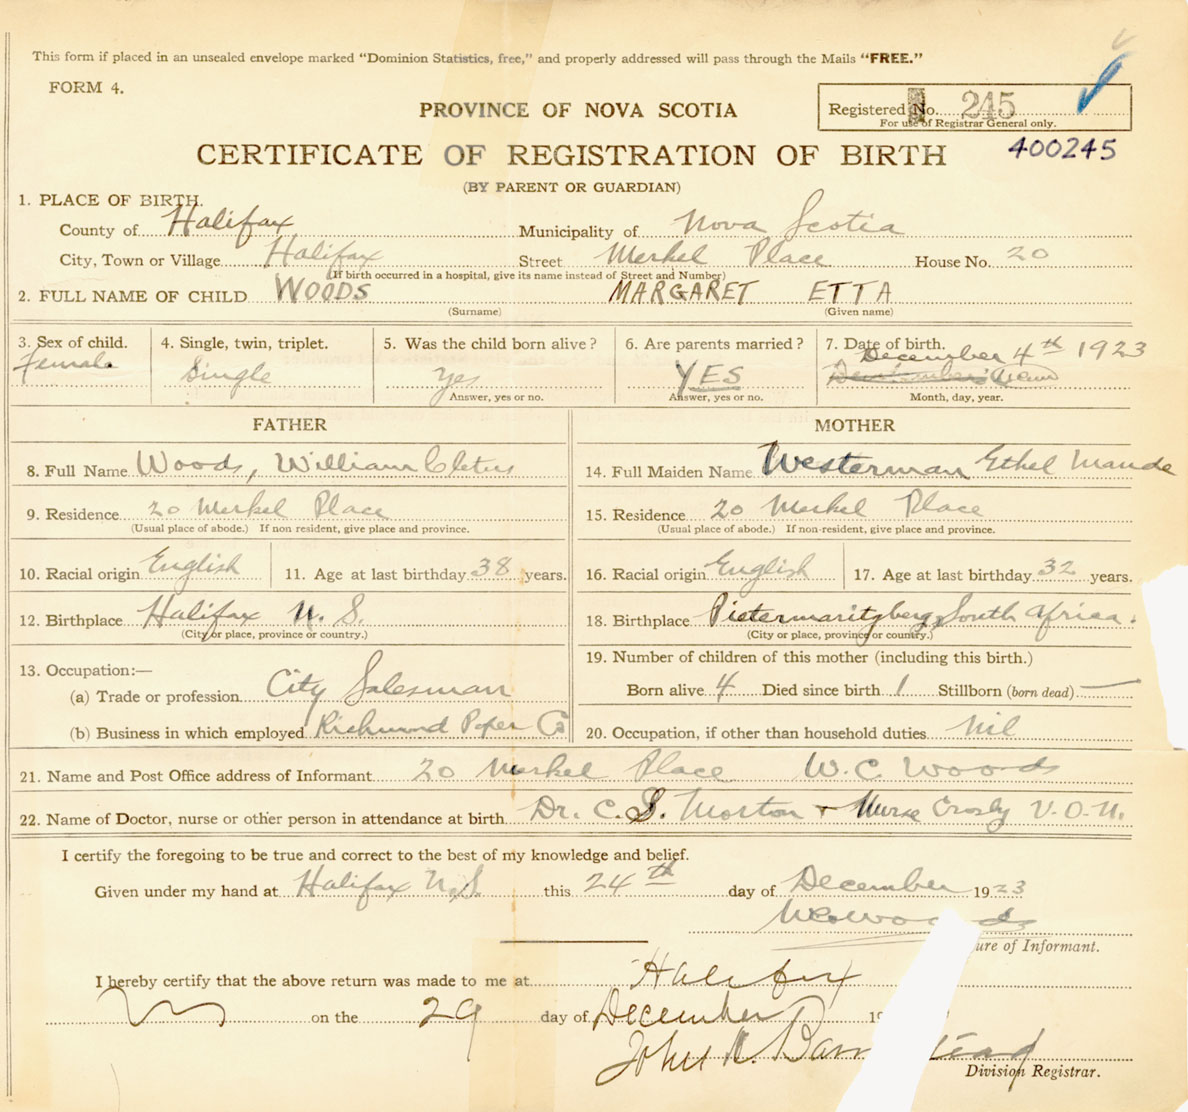 This form if placed in an unsealed envelope marked "Dominion Statistics, free," and properly addressed will pass through the Mails "FREE."
FORM 4.
PROVINCE OF NOVA SCOTIA
Registered No. 245
For use of Registrar General only.
CERTIFICATE OF REGISTRATION OF BIRTH
400245
(BY PARENT OR GUARDIAN)
1. PLACE OF BIRTH.
County of Halifax Municipality of Nova Scotia
City, Town or Village Halifax Street Merkel Place House No. 20
(If birth occurred in a hospital, give its name instead of Street and Number)
2. FULL NAME OF CHILD WOODS MARGARET ETTA
(Surname) (Given name)
3. Sex of child. 4. Single, twin, triplet. 5. Was the child born alive? 6. Are parents married? 7. Date of birth.
December 4th 1923
Female Single Yes YES
Answer, yes or no. Answer, yes or no. Month, day, year.
FATHER MOTHER
8. Full Name Woods, William Cletus 14. Full Maiden Name Westerman Ethel Maude
9. Residence 20 Merkel Place 15. Residence 20 Merkel Place
(Usual place of abode.) If non resident, give place and province. (Usual place of abode.) If non-resident, give place and province.
10. Racial origin English 11. Age at last birthday 38 years. 16. Racial origin English 17. Age at last birthday 32 years.
12. Birthplace Halifax N. S. 18. Birthplace Pietermaritzberg, South Africa.
(City or place, province or country.) (City or place, province or country.)
13. Occupation:— 19. Number of children of this mother (including this birth.)
(a) Trade or profession City Salesman Born alive 4 Died since birth 1 Stillborn (born dead) —
(b) Business in which employed Richmond Paper Co 20. Occupation, if other than household duties nil
21. Name and Post Office address of Informant 20 Merkel Place W. C. Woods
22. Name of Doctor, nurse or other person in attendance at birth Dr. C. S. Morton + Nurse Crosby V.O.N.
I certify the foregoing to be true and correct to the best of my knowledge and belief.
Given under my hand at Halifax N.S. this 24th day of December 1923
WCWoods
ure of Informant.
I hereby certify that the above return was made to me at Halifax
on the 29 day of December 19
John R. Barr stead
Division Registrar.